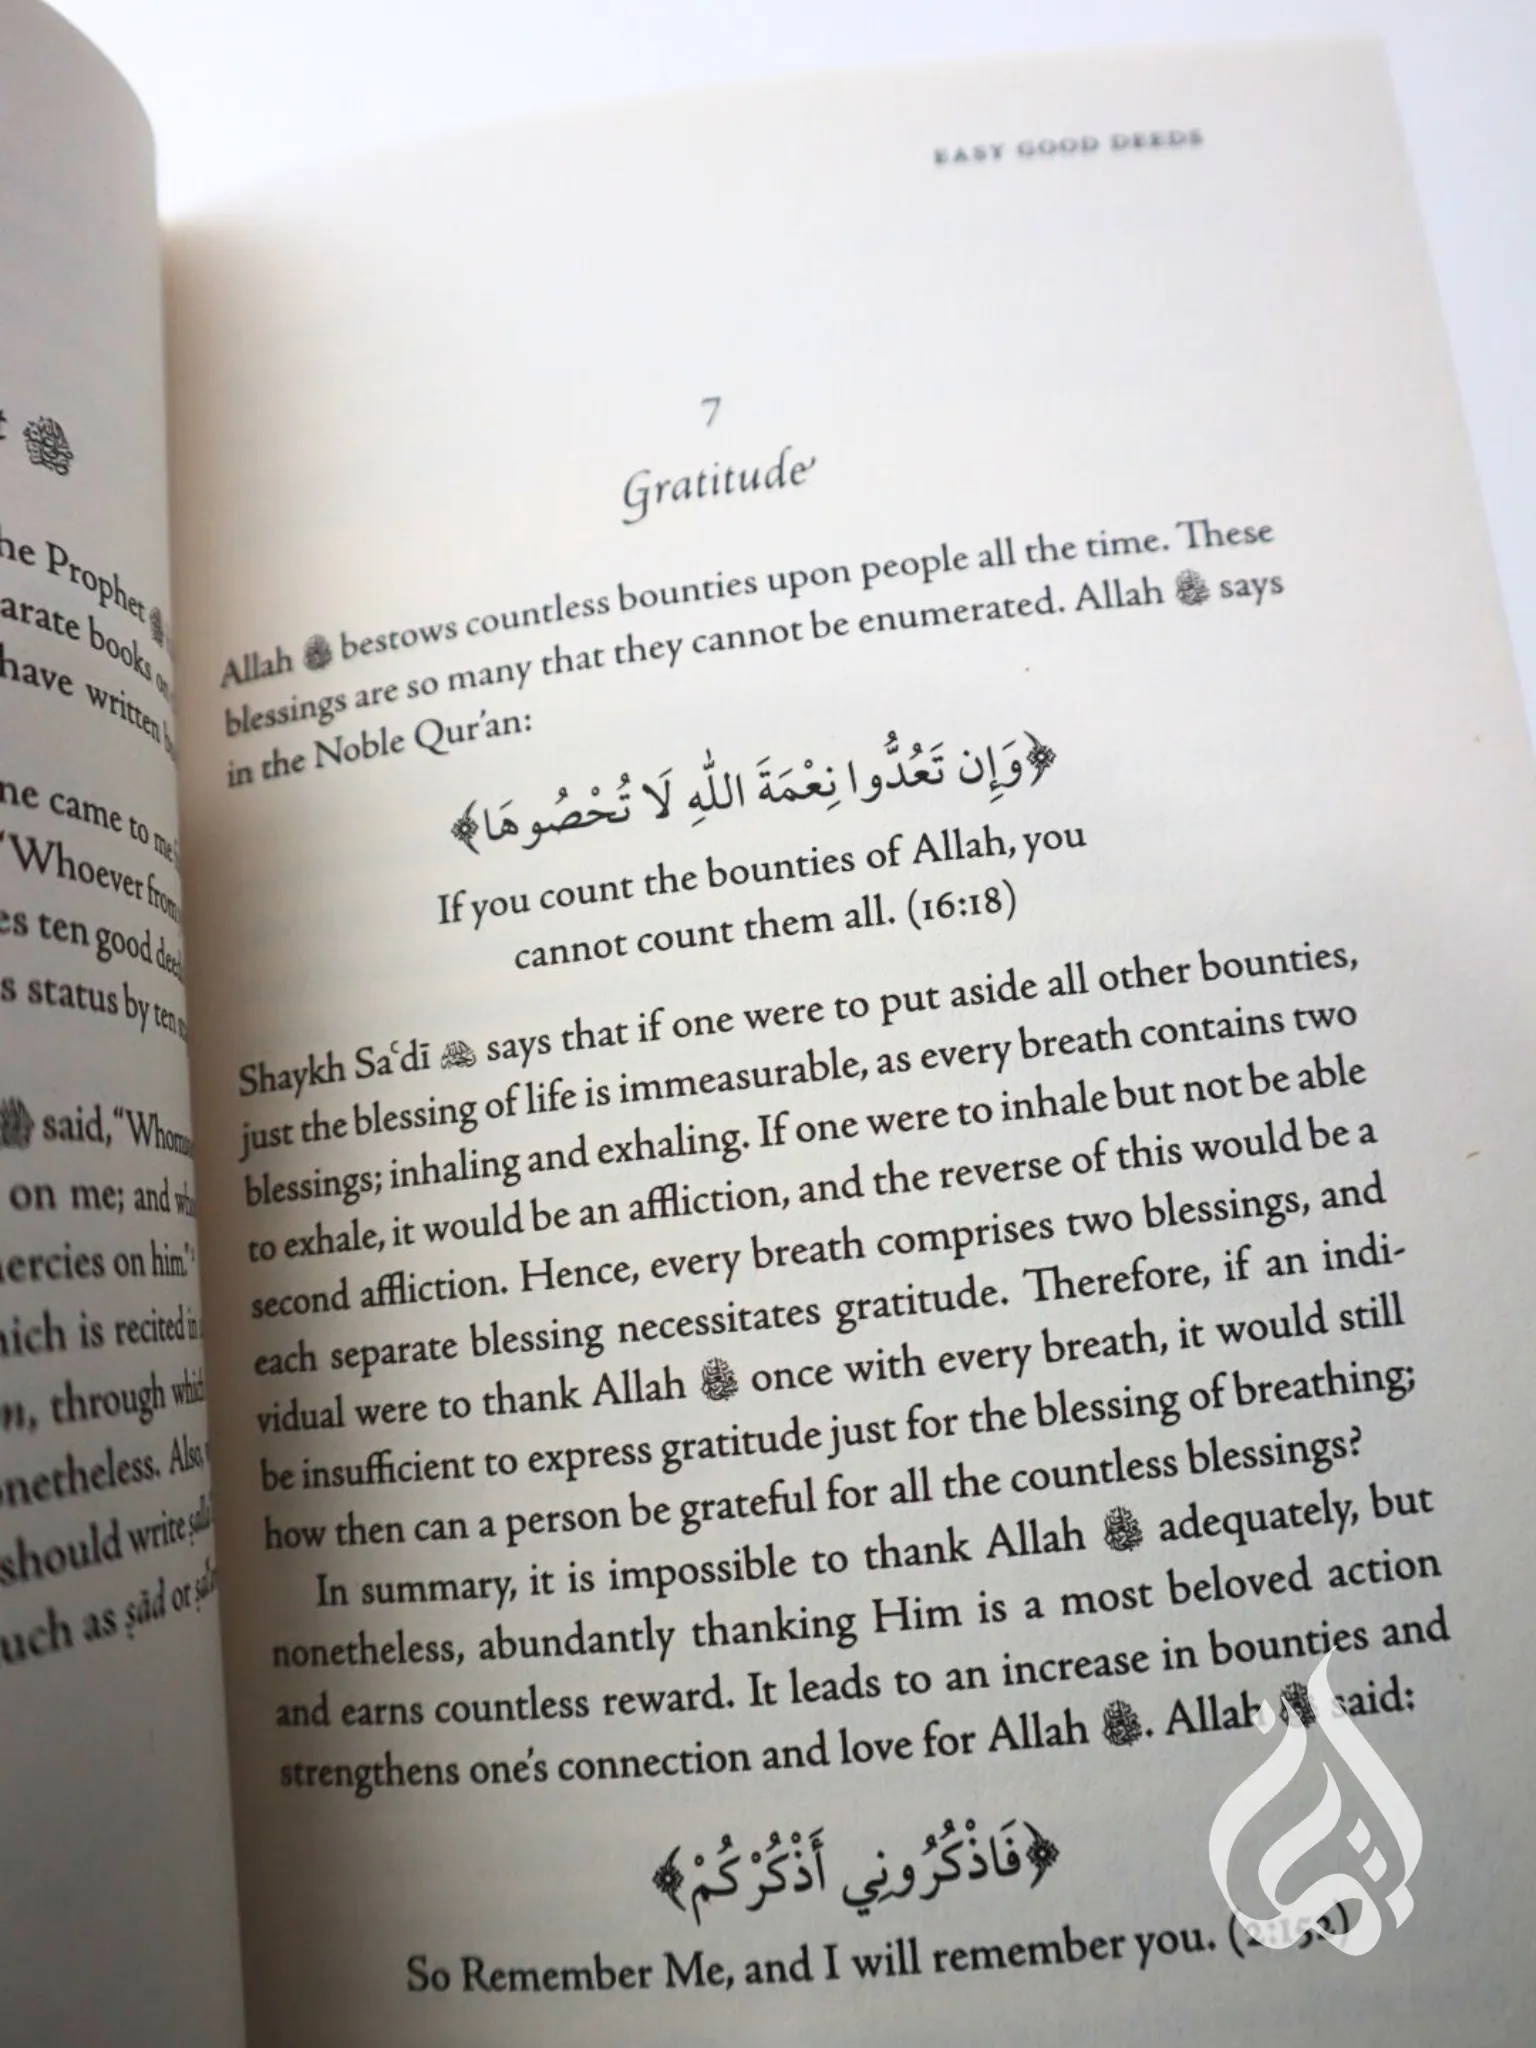 he Prophet
arate books
have written
ne came to me
"Whoever from
es ten good
s status by ten
said, "Whom
on me; and
ercies on him."
hich is recited in
n, through which
onetheless. Also,
should write
uch as ṣād or
EASY GOOD DEEDS
7
Gratitude
Allah ﷻ bestows countless bounties upon people all the time. These
blessings are so many that they cannot be enumerated. Allah ﷻ says
in the Noble Qur'an:
﴿وَإِن تَعُدُّوا نِعْمَةَ اللَّهِ لَا تُحْصُوهَا﴾
If you count the bounties of Allah, you
cannot count them all. (16:18)
Shaykh Saʿdī says that if one were to put aside all other bounties,
just the blessing of life is immeasurable, as every breath contains two
blessings; inhaling and exhaling. If one were to inhale but not be able
to exhale, it would be an affliction, and the reverse of this would be a
second affliction. Hence, every breath comprises two blessings, and
each separate blessing necessitates gratitude. Therefore, if an indi-
vidual were to thank Allah ﷻ once with every breath, it would still
be insufficient to express gratitude just for the blessing of breathing;
how then can a person be grateful for all the countless blessings?
In summary, it is impossible to thank Allah ﷻ adequately, but
nonetheless, abundantly thanking Him is a most beloved action
and earns countless reward. It leads to an increase in bounties and
strengthens one's connection and love for Allah ﷻ. Allah ﷻ said:
﴿فَاذْكُرُونِي أَذْكُرْكُمْ﴾
So Remember Me, and I will remember you. (2:152)